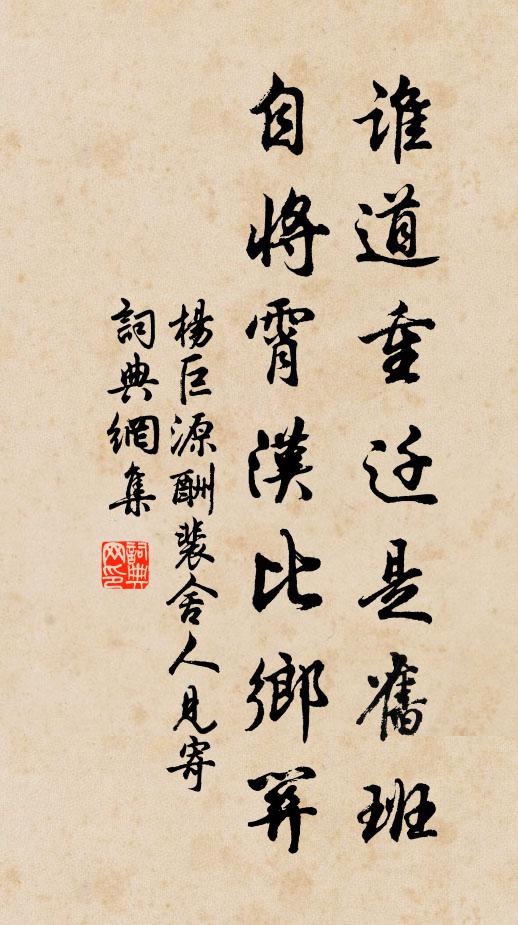 誰道重迁是舊班
自將霄漢比鄉關
楊巨源酬裴舍人見寄
詞典網集
詞典网印